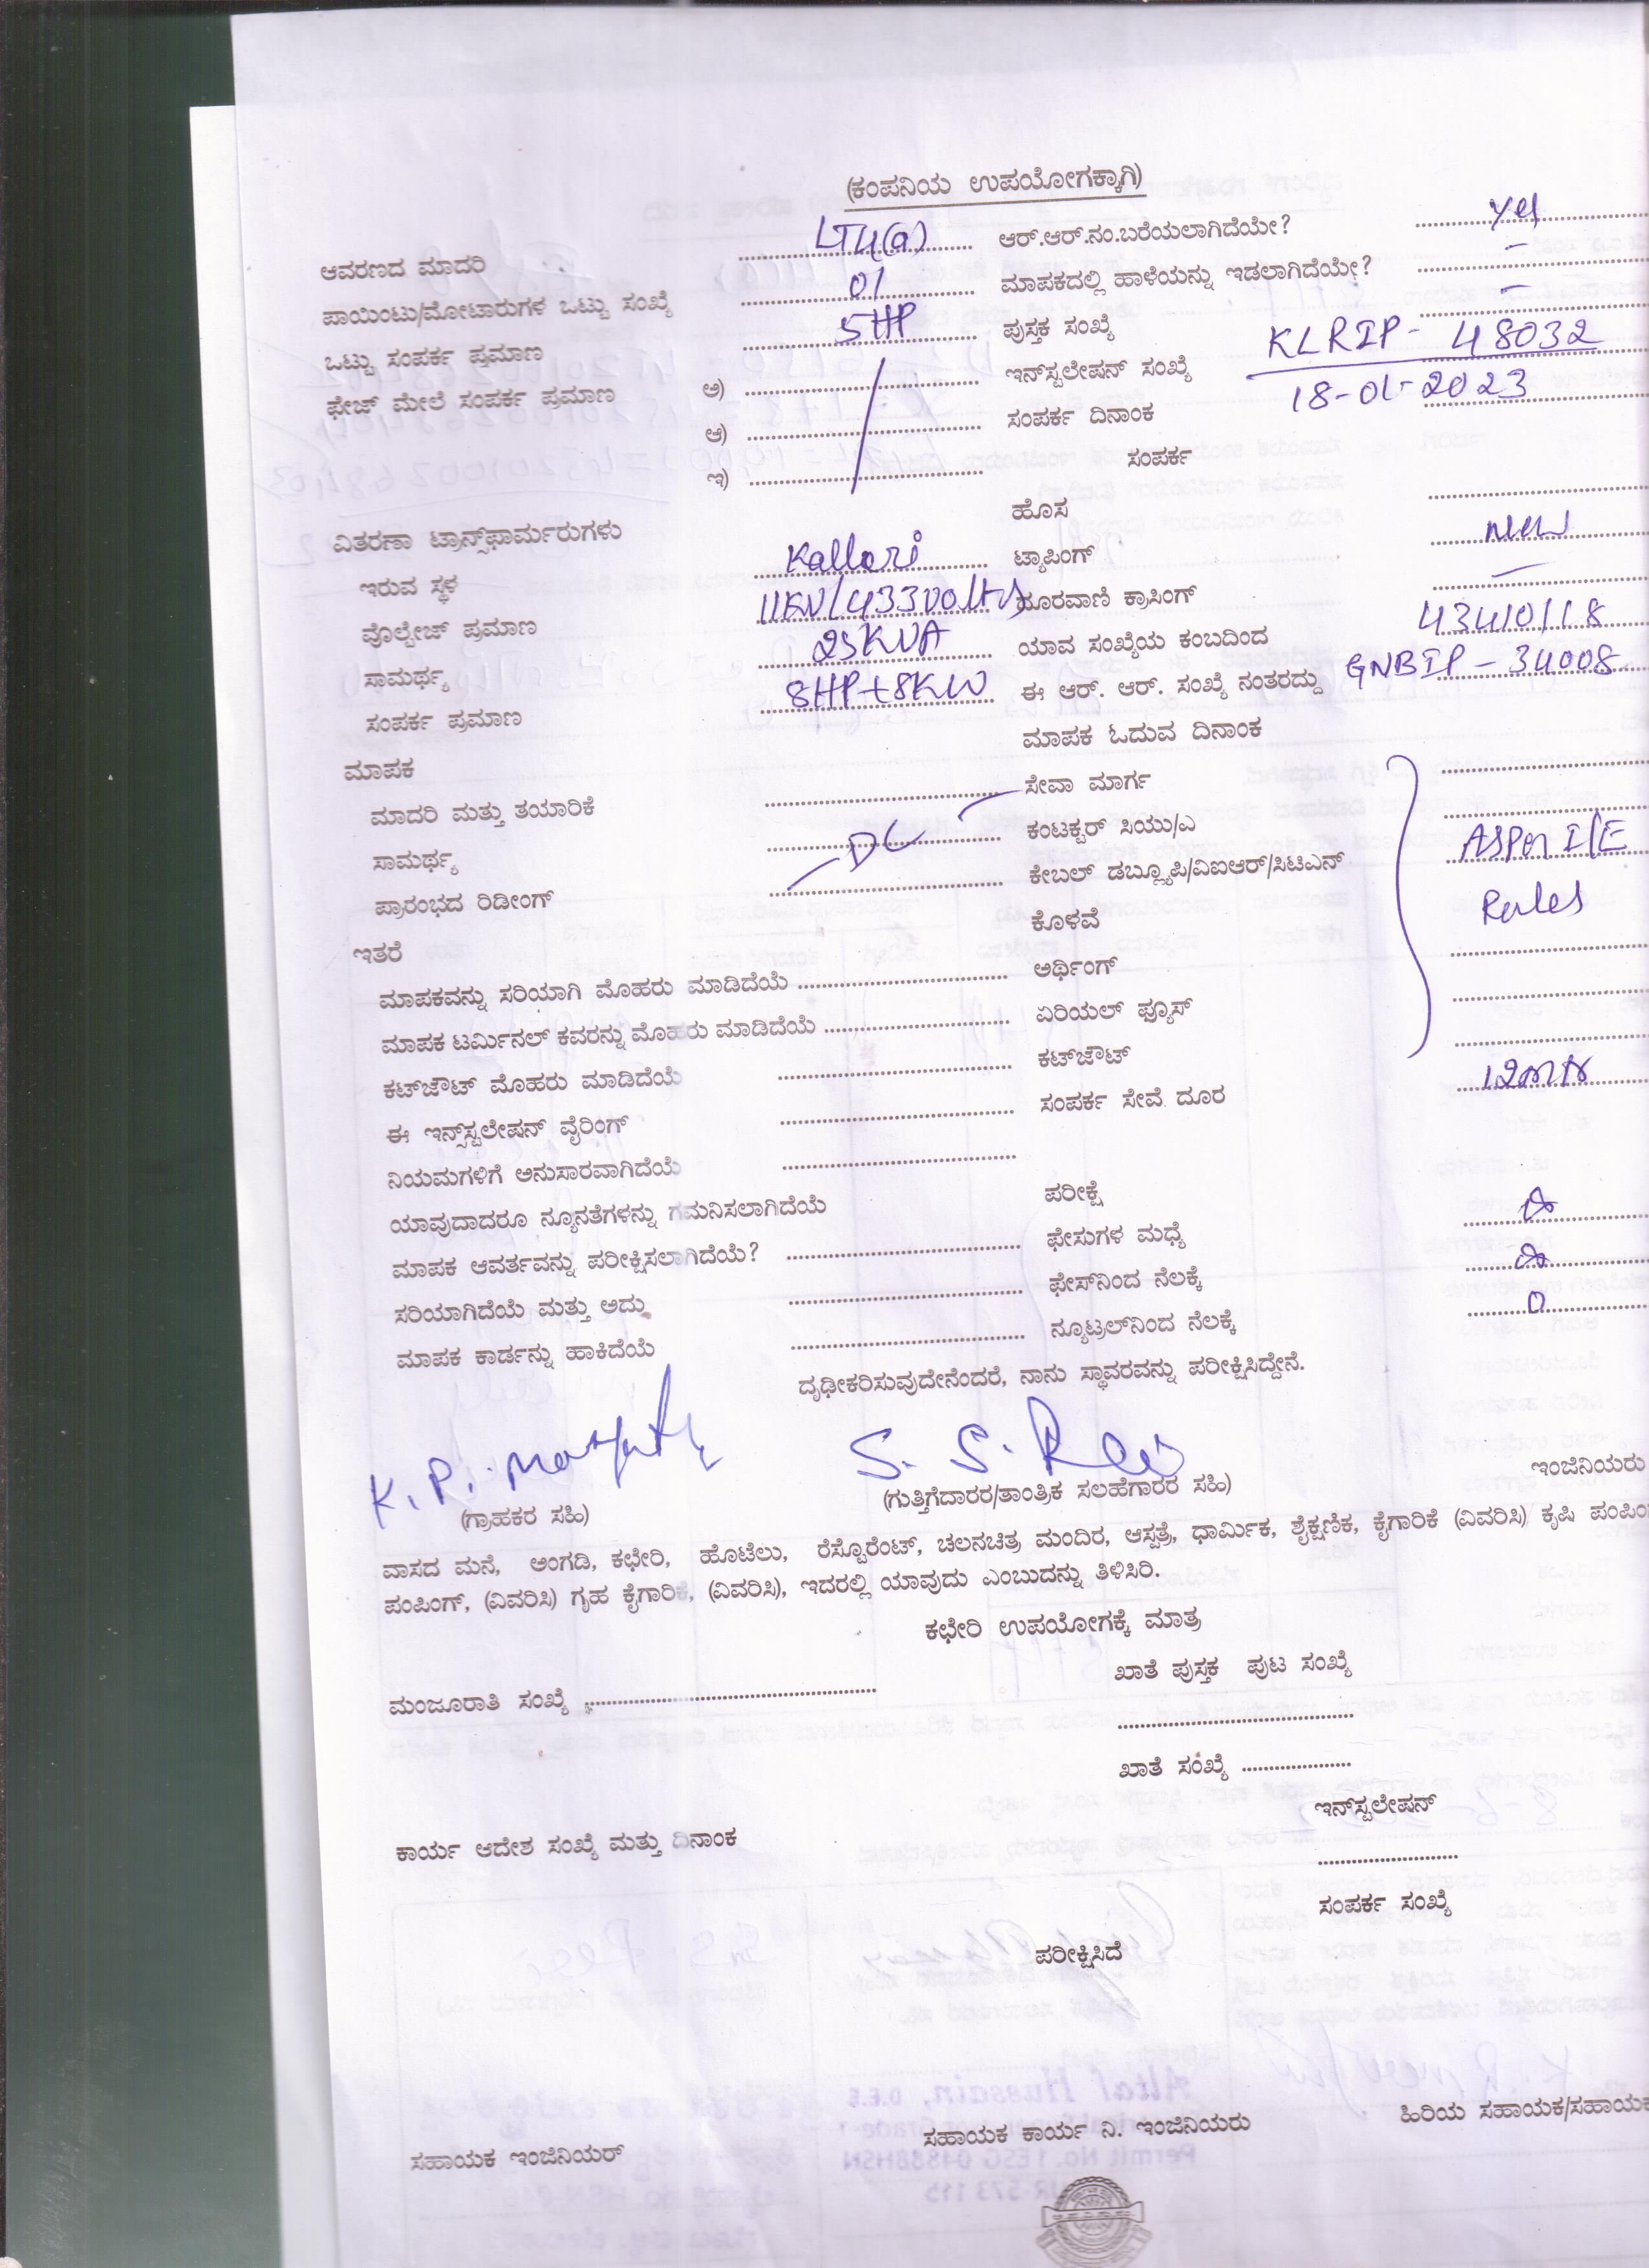 (ಕಂಪನಿಯ ಉಪಯೋಗಕ್ಕಾಗಿ)
ಆವರಣದ ಮಾದರಿ LT4(a) ಆರ್.ಆರ್.ನಂ.ಬರೆಯಲಾಗಿದೆಯೇ? yes
ಪಾಯಿಂಟು/ಮೋಟಾರುಗಳ ಒಟ್ಟು ಸಂಖ್ಯೆ 01 ಮಾಪಕದಲ್ಲಿ ಹಾಳೆಯನ್ನು ಇಡಲಾಗಿದೆಯೇ? -
ಒಟ್ಟು ಸಂಪರ್ಕ ಪ್ರಮಾಣ 5HP ಪುಸ್ತಕ ಸಂಖ್ಯೆ -
ಫೇಜ್ ಮೇಲೆ ಸಂಪರ್ಕ ಪ್ರಮಾಣ ಅ) ಇನ್‌ಸ್ಟಲೇಷನ್ ಸಂಖ್ಯೆ KLRIP - 48032
ಆ) ಸಂಪರ್ಕ ದಿನಾಂಕ 18-01-2023
ಇ) ಸಂಪರ್ಕ
ವಿತರಣಾ ಟ್ರಾನ್ಸ್‌ಫಾರ್ಮರುಗಳು ಹೊಸ
ಇರುವ ಸ್ಥಳ Kallari ಟ್ಯಾಪಿಂಗ್ new
ವೊಲ್ಟೇಜ್ ಪ್ರಮಾಣ 11KV/433Volts ದೂರವಾಣಿ ಕ್ರಾಸಿಂಗ್ -
ಸಾಮರ್ಥ್ಯ 25KVA ಯಾವ ಸಂಖ್ಯೆಯ ಕಂಬದಿಂದ
ಸಂಪರ್ಕ ಪ್ರಮಾಣ 8HP+8KW ಈ ಆರ್. ಆರ್. ಸಂಖ್ಯೆ ನಂತರದ್ದು GNBIP - 34008
ಮಾಪಕ ಮಾಪಕ ಓದುವ ದಿನಾಂಕ
ಮಾದರಿ ಮತ್ತು ತಯಾರಿಕೆ ಸೇವಾ ಮಾರ್ಗ
ಸಾಮರ್ಥ್ಯ DC ಕಂಟಕ್ಟರ್ ಸಿಯು/ಎ ASPer I/E
ಪ್ರಾರಂಭದ ರಿಡೀಂಗ್ ಕೇಬಲ್ ಡಬ್ಲ್ಯೂಪಿ/ವಿಐಆರ್/ಸಿಟಿಎನ್ Rules
ಇತರೆ ಕೊಳವೆ
ಮಾಪಕವನ್ನು ಸರಿಯಾಗಿ ಮೊಹರು ಮಾಡಿದೆಯೆ ಅರ್ಥಿಂಗ್
ಮಾಪಕ ಟರ್ಮಿನಲ್ ಕವರನ್ನು ಮೊಹರು ಮಾಡಿದೆಯೆ ಏರಿಯಲ್ ಫ್ಯೂಸ್
ಕಟ್‌ಔಟ್ ಮೊಹರು ಮಾಡಿದೆಯೆ ಕಟ್‌ಔಟ್
ಈ ಇನ್ಸ್‌ಸ್ಟಲೇಷನ್ ವೈರಿಂಗ್ ಸಂಪರ್ಕ ಸೇವೆ ದೂರ 12mtr
ನಿಯಮಗಳಿಗೆ ಅನುಸಾರವಾಗಿದೆಯೆ
ಯಾವುದಾದರೂ ನ್ಯೂನತೆಗಳನ್ನು ಗಮನಿಸಲಾಗಿದೆಯೆ ಪರೀಕ್ಷೆ
ಮಾಪಕ ಆವರ್ತವನ್ನು ಪರೀಕ್ಷಿಸಲಾಗಿದೆಯೆ? ಫೇಸುಗಳ ಮಧ್ಯೆ
ಸರಿಯಾಗಿದೆಯೆ ಮತ್ತು ಅದು ಫೇಸ್‌ನಿಂದ ನೆಲಕ್ಕೆ
ಮಾಪಕ ಕಾರ್ಡನ್ನು ಹಾಕಿದೆಯೆ ನ್ಯೂಟ್ರಲ್‌ನಿಂದ ನೆಲಕ್ಕೆ 0
ದೃಢೀಕರಿಸುವುದೇನೆಂದರೆ, ನಾನು ಸ್ಥಾವರವನ್ನು ಪರೀಕ್ಷಿಸಿದ್ದೇನೆ.
K. P. S. S. Rao
(ಗ್ರಾಹಕರ ಸಹಿ) (ಗುತ್ತಿಗೆದಾರರ/ತಾಂತ್ರಿಕ ಸಲಹೆಗಾರರ ಸಹಿ) ಇಂಜಿನಿಯರು
ವಾಸದ ಮನೆ, ಅಂಗಡಿ, ಕಛೇರಿ, ಹೊಟೆಲು, ರೆಸ್ಟೊರೆಂಟ್, ಚಲನಚಿತ್ರ ಮಂದಿರ, ಆಸ್ಪತ್ರೆ, ಧಾರ್ಮಿಕ, ಶೈಕ್ಷಣಿಕ, ಕೈಗಾರಿಕೆ (ವಿವರಿಸಿ) ಕೃಷಿ
ಪಂಪಿಂಗ್, (ವಿವರಿಸಿ) ಗೃಹ ಕೈಗಾರಿಕೆ, (ವಿವರಿಸಿ), ಇದರಲ್ಲಿ ಯಾವುದು ಎಂಬುದನ್ನು ತಿಳಿಸಿರಿ.
ಕಛೇರಿ ಉಪಯೋಗಕ್ಕೆ ಮಾತ್ರ
ಖಾತೆ ಪುಸ್ತಕ ಪುಟ ಸಂಖ್ಯೆ
ಮಂಜೂರಾತಿ ಸಂಖ್ಯೆ
ಖಾತೆ ಸಂಖ್ಯೆ
ಇನ್‌ಸ್ಟಲೇಷನ್
ಕಾರ್ಯ ಆದೇಶ ಸಂಖ್ಯೆ ಮತ್ತು ದಿನಾಂಕ
ಸಂಪರ್ಕ ಸಂಖ್ಯೆ
ಪರೀಕ್ಷಿಸಿದೆ
ಸಹಾಯಕ ಇಂಜಿನಿಯರ್ ಸಹಾಯಕ ಕಾರ್ಯ ನಿ. ಇಂಜಿನಿಯರು ಹಿರಿಯ ಸಹಾಯಕ/ಸಹಾಯಕ